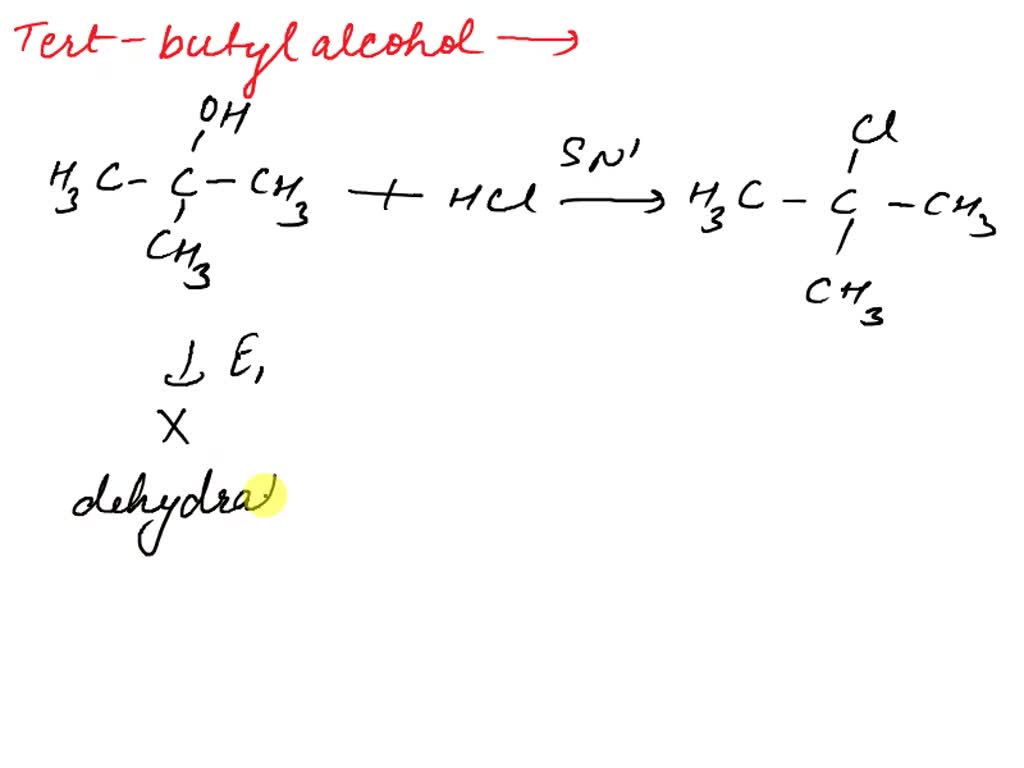 Tert-butyl alcohol →
OH
H3C - C - CH3 + HCl SN1 → H3C - C - CH3
Cl
CH3
CH3
↓ E1
X
dehydra